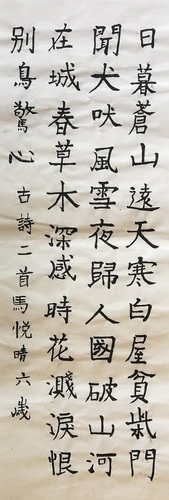 日暮蒼山遠天寒白屋貧柴門
聞犬吠風雪夜歸人國破山河
在城春草木深感時花濺淚恨
別鳥驚心古詩二首馬悦晴六歲